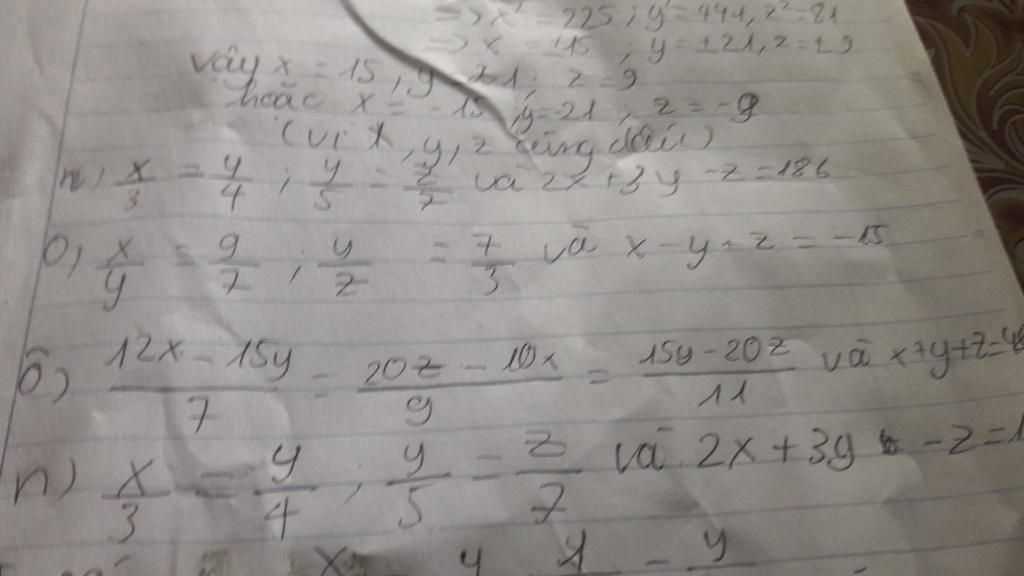 => x² = 225 ; y² = 441, z² = 81
=> x = ±15 ; y = ±21, z = ±9
vậy x = 15, y = 21 ; z = 9
hoặc x = -15 ; y = -21 ; z = -9
(vì x, y, z cùng dấu)
n, x/3 = y/4 ; y/5 = z/7 và 2x + 3y - z = 186
o, x/y = 9/7 ; y/z = 7/3 và x - y + z = -15
ô) 12x - 15y/7 = 20z - 10x/9 = 15y - 20z/11 và x + y + z = 48
n) x/3 = y/4 ; y/5 = z/7 và 2x + 3y - z = 1
x y y